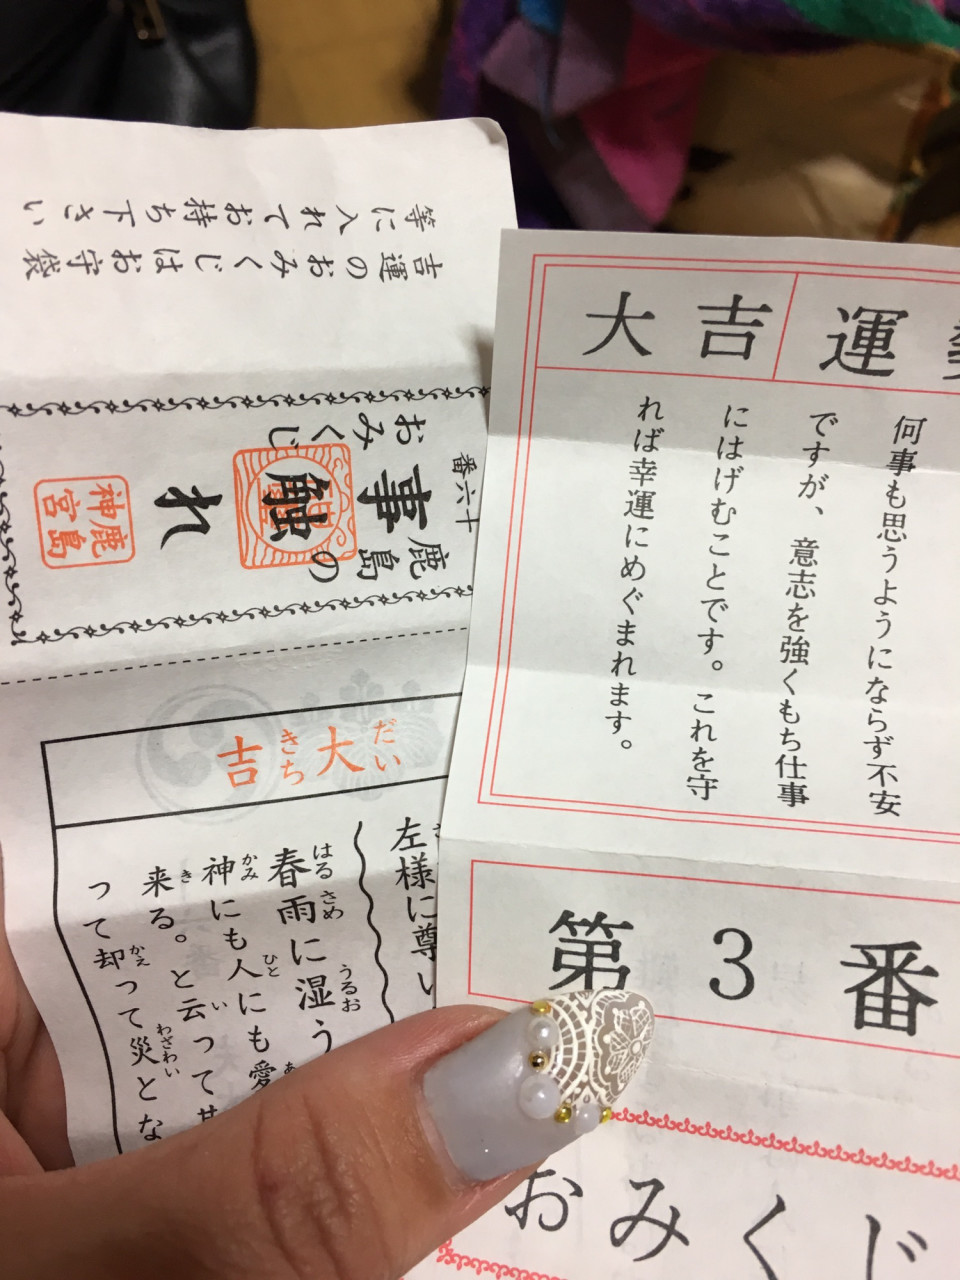 等に入れてお持ち下さい
吉運のおみくじはお守袋
番六十
おみくじ
鹿島の
事触れ
鹿島
神宮
だい
大
きち
吉
左様に尊い
はる さめ うるお
春雨に湿う
かみ ひと
神にも人にも愛
き い
来る。と云って
かえ わざわい
って却って災とな
大吉
運
何事も思うようにならず不安
ですが、意志を強くもち仕事
にはげむことです。これを守
れば幸運にめぐまれます。
第3番
おみくじ